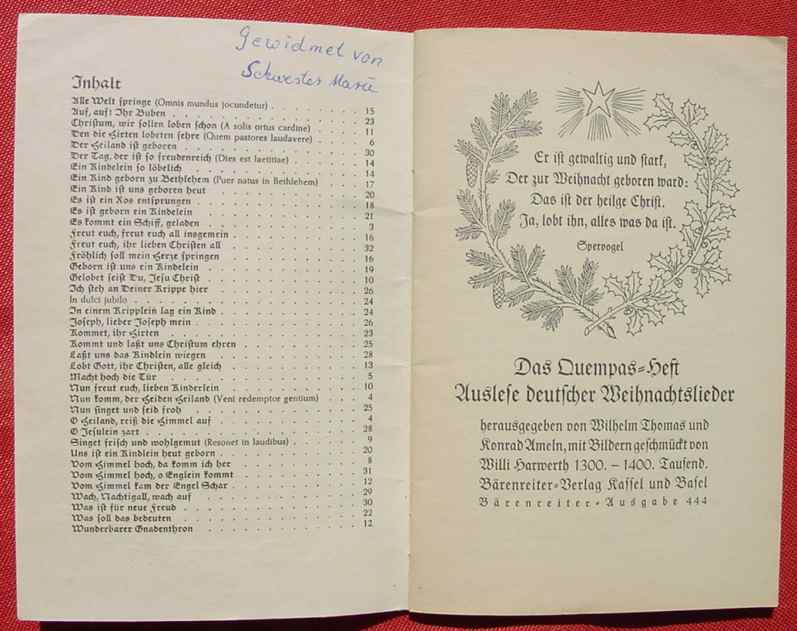 Gewidmet von
Schwester Marie
Inhalt
Alle Welt springe (Omnis mundus jocundetur) . . . . . . . 15
Auf, auf! Ihr Buben . . . . . . . 23
Christum, wir sollen loben schon (A solis ortus cardine) . . . . 11
Den die Hirten lobeten sehre (Quem pastores laudavere) . . . . 6
Der Heiland ist geboren . . . . . . . 30
Der Tag, der ist so freudenreich (Dies est laetitiae) . . . . . 14
Ein Kindelein so löbelich . . . . . . . 14
Ein Kind geborn zu Bethlehem (Puer natus in Bethlehem) . . . . 17
Ein Kind ist uns geboren heut . . . . . . . 20
Es ist ein Ros entsprungen . . . . . . . 18
Es ist geborn ein Kindelein . . . . . . . 21
Es kommt ein Schiff, geladen . . . . . . . 3
Freut euch, freut euch all insgemein . . . . . . . 16
Freut euch, ihr lieben Christen all . . . . . . . 32
Fröhlich soll mein Herze springen . . . . . . . 16
Geborn ist uns ein Kindelein . . . . . . . 19
Gelobet seist Du, Jesu Christ . . . . . . . 10
Ich steh an Deiner Krippe hier . . . . . . . 26
In dulci jubilo . . . . . . . 24
In einem Kripplein lag ein Kind . . . . . . . 24
Joseph, lieber Joseph mein . . . . . . . 26
Kommet, ihr Hirten . . . . . . . 23
Kommt und laßt uns Christum ehren . . . . . . . 25
Laßt uns das Kindlein wiegen . . . . . . . 28
Lobt Gott, ihr Christen, alle gleich . . . . . . . 13
Macht hoch die Tür . . . . . . . 5
Nun freut euch, lieben Kinderlein . . . . . . . 10
Nun komm, der Heiden Heiland (Veni redemptor gentium) . . . . 4
Nun singet und seid froh . . . . . . . 25
O Heiland, reiß die Himmel auf . . . . . . . 4
O Jesulein zart . . . . . . . 28
Singet frisch und wohlgemut (Resonet in laudibus) . . . . . 9
Uns ist ein Kindlein heut geborn . . . . . . . 20
Vom Himmel hoch, da komm ich her . . . . . . . 8
Vom Himmel hoch, o Englein kommt . . . . . . . 31
Vom Himmel kam der Engel Schar . . . . . . . 12
Wach, Nachtigall, wach auf . . . . . . . 29
Was ist für neue Freud . . . . . . . 30
Was soll das bedeuten . . . . . . . 22
Wunderbarer Gnadenthron . . . . . . . 12
Er ist gewaltig und stark,
Der zur Weihnacht geboren ward:
Das ist der heilge Christ.
Ja, lobt ihn, alles was da ist.
Spervogel
Das Quempas-Heft
Auslese deutscher Weihnachtslieder
herausgegeben von Wilhelm Thomas und
Konrad Ameln, mit Bildern geschmückt von
Willi Harwerth 1300. - 1400. Tausend.
Bärenreiter-Verlag Kassel und Basel
Bärenreiter-Ausgabe 444